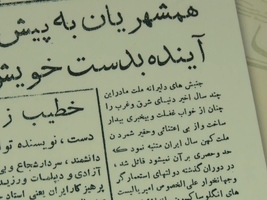 همشهریان به پیش
آینده بدست خویش
جنبش های دلیرانه ملت مادراین
چند سال اخیر دنیای شرق وغرب را
چنان از خواب غفلت وبیخبری بیدار
ساخت واز بی اعتنائی وحقیر شمردن
ملت کهن سال ایران متنبه نمود که
حد وحصری بر آن نمیشود قائل شد ،
در دوران گذشته دولتهای استعمارگر
وجهانخوار علی الخصوص امپریالیست
های انگلو
خطیب ز
دست ، نویسنده توا
دانشمند ، سردارشجاع وبی
آزادی و دیپلمات ورزید
پرهیز کار ایران یعنی استاد